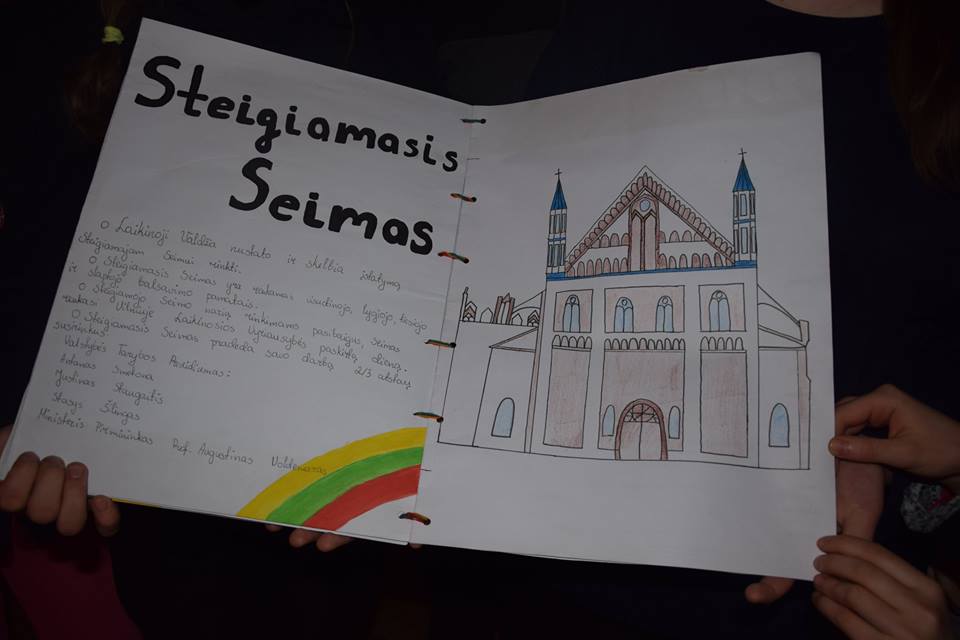 Steigiamasis
Seimas
O Laikinoji Valdžia nustato ir skelbia įstatymą
Steigiamajam Seimui rinkti.
O Steigiamasis Seimas yra renkamas visuotinojo, lygiojo, tiesiojo
ir slaptojo balsavimo pamatais.
O Steigiamojo Seimo narių rinkimams pasibaigus, Seimas
renkasi Vilniuje Laikinosios Vyriausybės paskirtą dieną.
O Steigiamasis Seimas pradeda savo darbą 2/3 atstovų
susirinkus.
Valstybės Tarybos Prezidiumas:
Antanas Smetona
Justinas Staugaitis
Stasys Šilingas
Ministeris Pirmininkas Prof. Augustinas Voldemaras